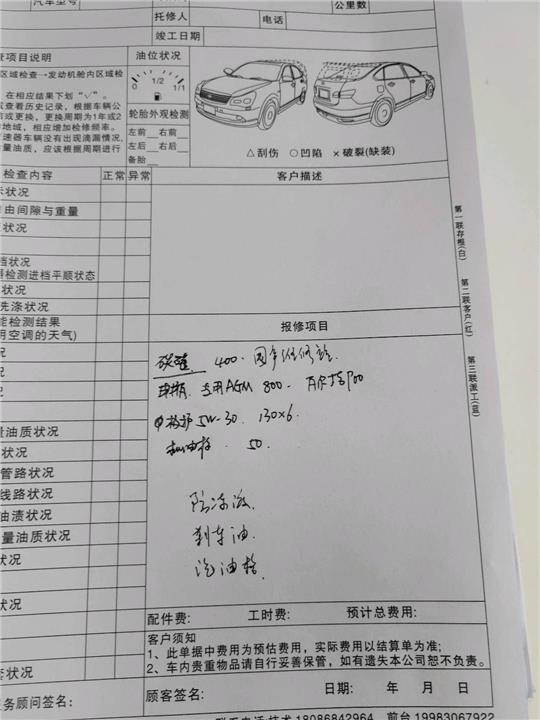 汽车型号
公里数
托修人
电话
竣工日期
查项目说明
油位状况
区域检查→发动机舱内区域检
在相应结果下划“√”。
1/2
0
1/1
或查看历史记录，根据车辆公
后或更换，更换周期为1年或2
地域，相应增加检修频率。
速器车辆没有出现滴漏情况，
量油质，应该根据周期进行
轮胎外观检测
左前 右前
左后 右后
备胎
△刮伤 ○凹陷 ×破裂(缺装)
检查内容
正常
异常
客户描述
状况
由间隙与重量
状况
档状况
检测进档平顺状态
状况
洗涤状况
能检测结果
明空调的天气)
况
况
况
量油质状况
状况
管路状况
线路状况
油渍状况
量油质状况
状况
状况
套状况
报修项目
400.
AGM 800.
5W-30. 130×6.
机油格. 50.
防冻液.
刹车油.
汽油格.
第一联存根(白)
第二联客户(红)
第三联派工(蓝)
配件费: 工时费: 预计总费用:
客户须知
1、此单据中费用为预估费用，实际费用以结算单为准;
2、车内贵重物品请自行妥善保管，如有遗失本公司恕不负责。
务顾问签名:
顾客签名:
日期: 年 月 日
联系电话:技术 18086842964 前台 19983067922